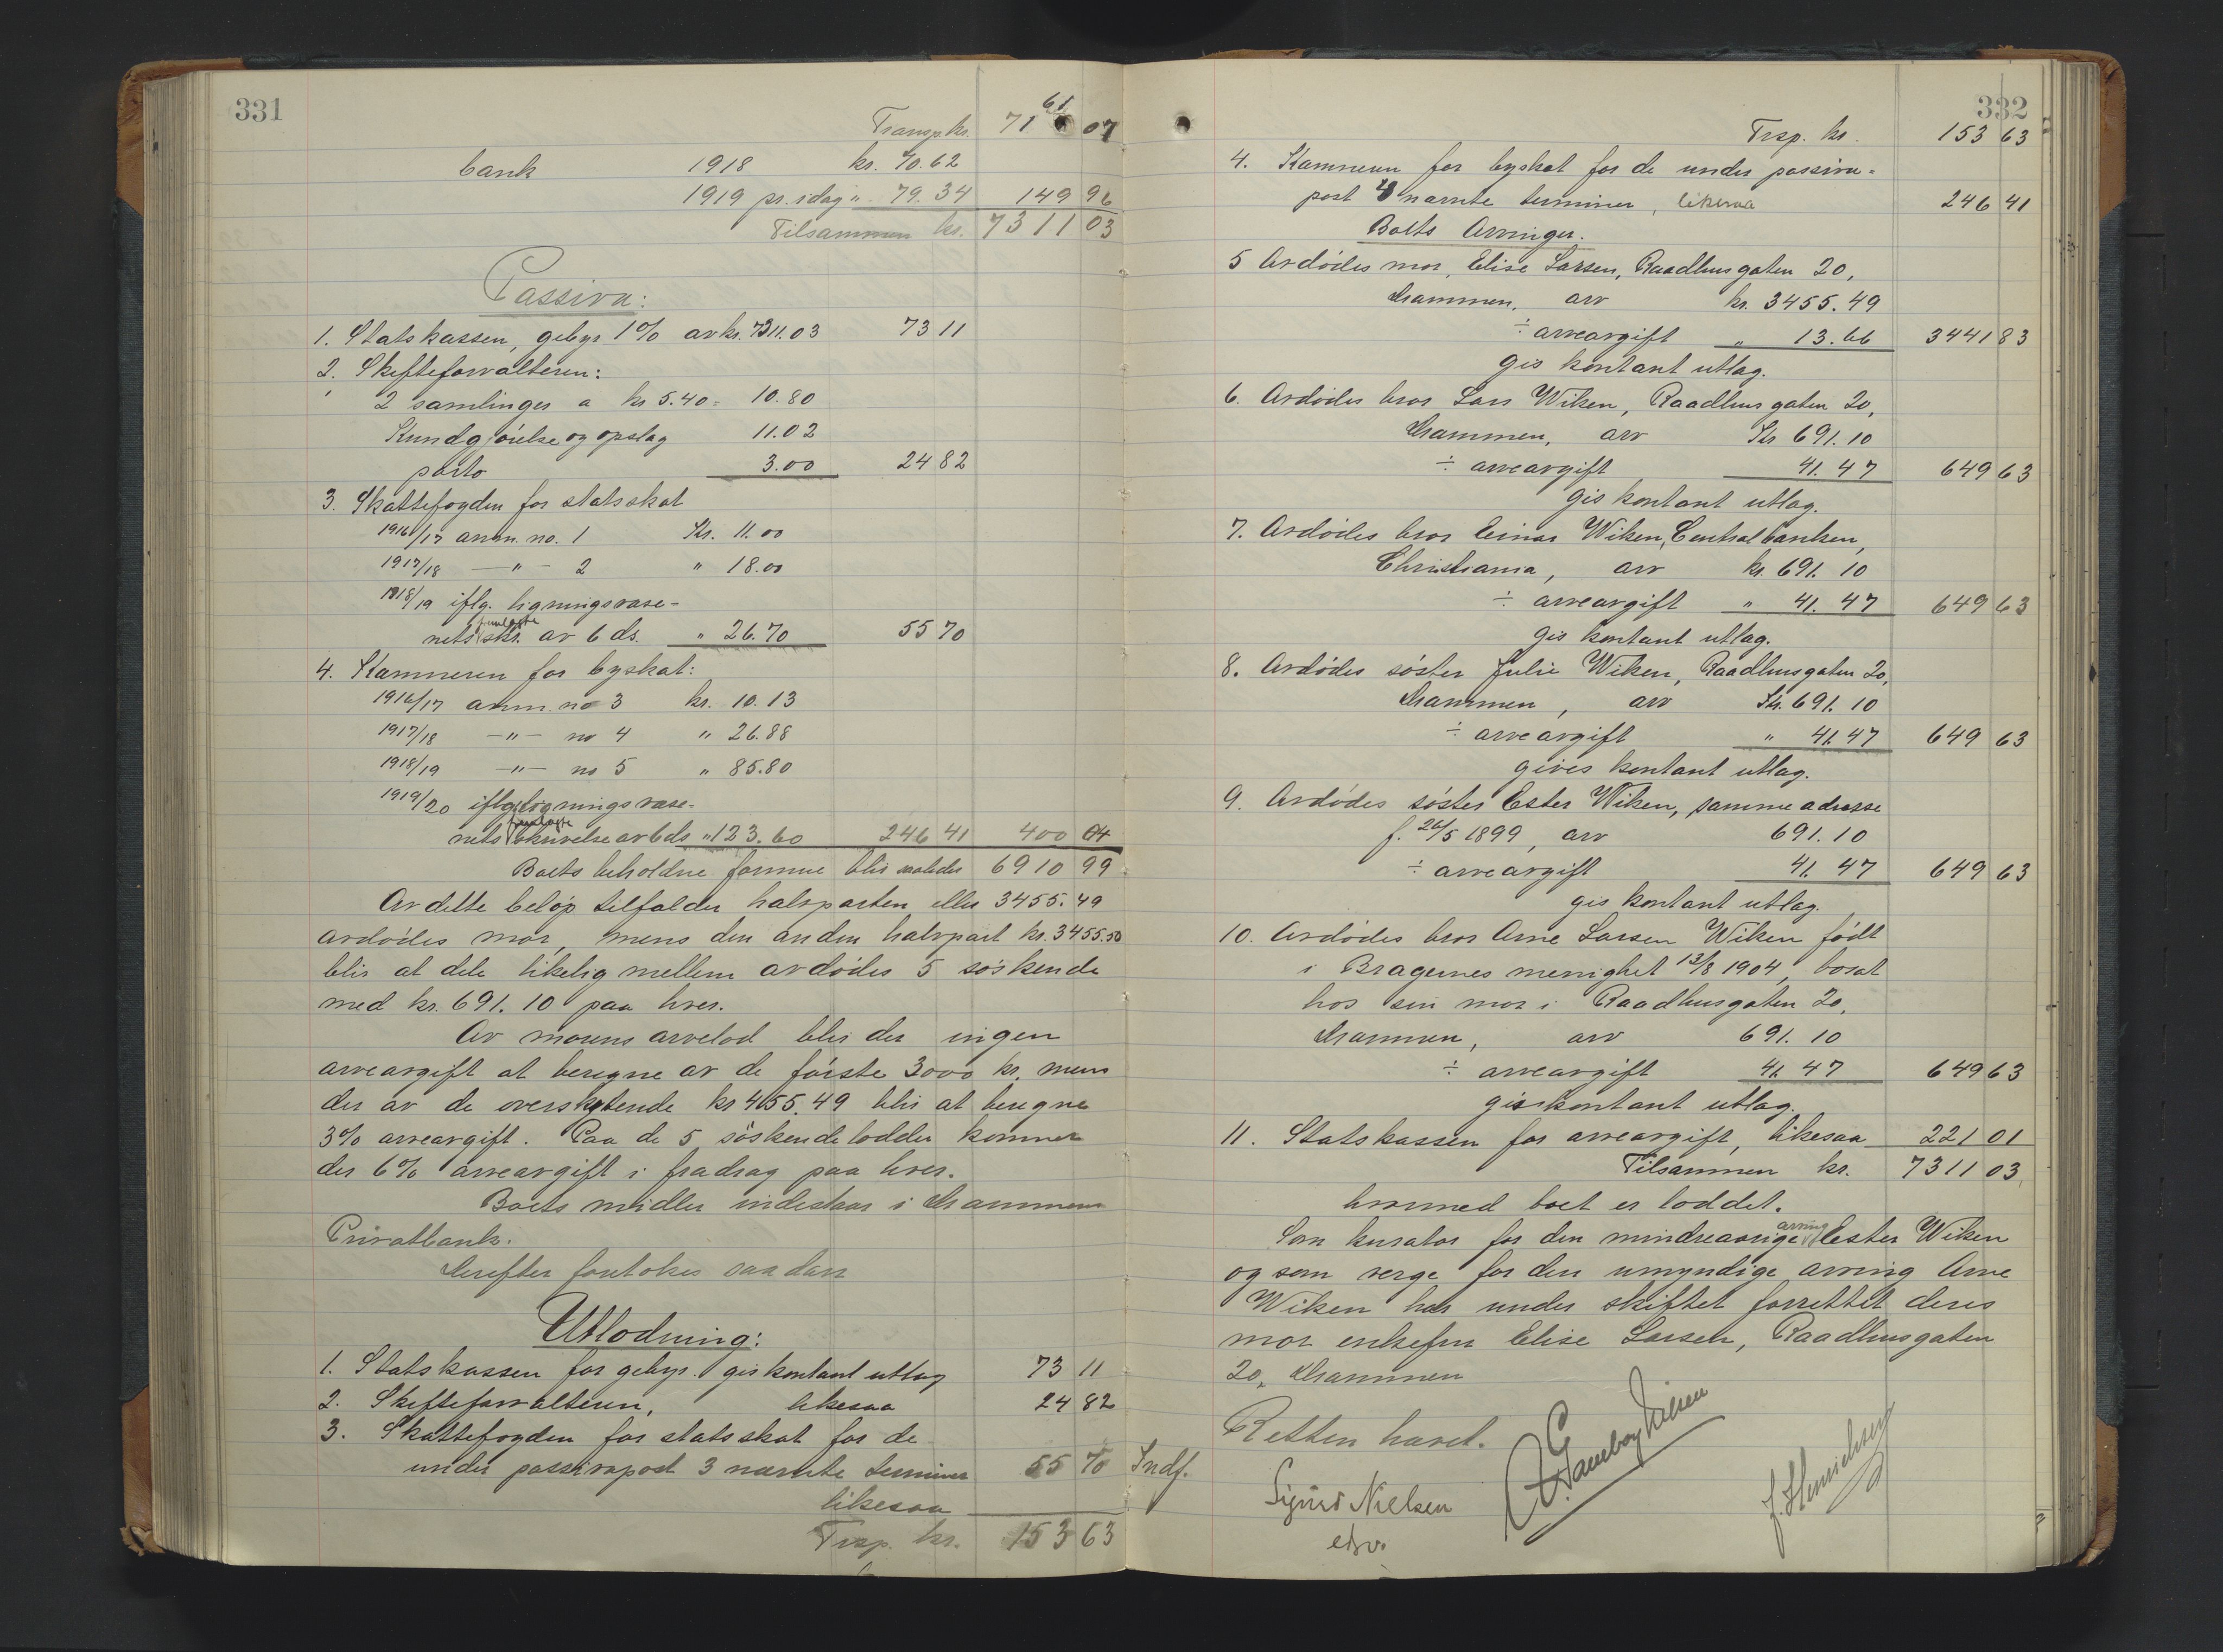 331
Transp. kr. 7161 07
bank 1918 kr. 70.62
1919 pr. idag " 79.34 149 96
Tilsammen kr. 7311 03
Passiva:
1. Statskassen, gebyr 1% av kr. 7311.03 73 11
2. Skifteforvalteren:
2 samlinger a kr 5.40 = 10.80
Kundgjörelse og opslag 11.02
porto 3.00 24 82
3. Skattefogden for statsskat
1916/17 anm. no. 1 Kr. 11.00
1917/18 —"— 2 " 18.00
1918/19 iflg. ligningsvæse-
nets fremlagte skr. av 6 ds. " 26.70 55 70
4. Kæmneren for byskat:
1916/17 anm. no 3 kr. 10.13
1917/18 —"— no 4 " 26.88
1918/19 —"— no 5 " 85.80
1919/20 iflg. ligningsvæse-
nets fremlagte skrivelse av 6 ds " 123.60 246 41 400 04
Boets beholdne formue blir saaledes 6910 99
Av dette beløp tilfalder halvparten eller 3455.49
avdödes mor, mens den anden halvpart kr. 3455.50
blir at dele likelig mellem avdödes 5 söskende
med kr. 691.10 paa hver.
Av morens arvelod blir der ingen
arveavgift at beregne av de förste 3000 kr. mens
der av de overskytende kr 455.49 blir at beregne
3% arveavgift. Paa de 5 söskendelodder kommer
der 6% arveavgift i fradrag paa hver.
Boets midler indestaar i Drammens
Privatbank.
Derefter foretokes saadan
Utlodning:
1. Statskassen for gebyr. gis kontant utlæg 73 11
2. Skifteforvalteren, likesaa 24 82
3. Skattefogden for statsskat for de
under passivapost 3 nævnte terminer 55 70
likesaa
Trsp. kr. 153 63
332
Trsp. kr. 153 63
4. Kæmneren for byskat for de under passiva-
post 4 nævnte terminer, likesaa 246 41
Boets Arvinger.
5 Avdödes mor, Elise Larsen, Raadhusgaten 20,
Drammen, arv kr. 3455.49
÷ arveavgift " 13.66 3441 83
gis kontant utlæg.
6. Avdödes bror Lars Wiken, Raadhusgaten 20,
Drammen, arv Kr 691.10
÷ arveavgift 41.47 649 63
gis kontant utlæg.
7. Avdödes bror Einar Wiken, Centralbanken,
Christiania, arv kr. 691.10
÷ arveavgift " 41.47 649 63
gis kontant utlæg.
8. Avdödes söster Julie Wiken, Raadhusgaten 20,
Drammen, arv Kr. 691.10
÷ arveavgift " 41.47 649 63
gives kontant utlæg.
9. Avdödes söster Ester Wiken, samme adresse
f. 26/5 1899, arv 691.10
÷ arveavgift 41.47 649 63
gis kontant utlæg.
10. Avdödes bror Arne Larsen Wiken født
i Bragernes menighet 13/8 1904, bosat
hos sin mor i Raadhusgaten 20,
Drammen, arv 691.10
÷ arveavgift 41.47 649 63
gis kontant utlæg.
11. Statskassen for arveavgift, likesaa 221 01
Tilsammen kr. 7311 03
hvormed boet er loddet.
Som kurator for den mindreaarige arving Ester Wiken
og som verge for den umyndige arving Arne
Wiken har under skiftet forrettet deres
mor enkefru Elise Larsen, Raadhusgaten
20, Drammen
Retten hævet.
Indf.
Sigurd Nielsen